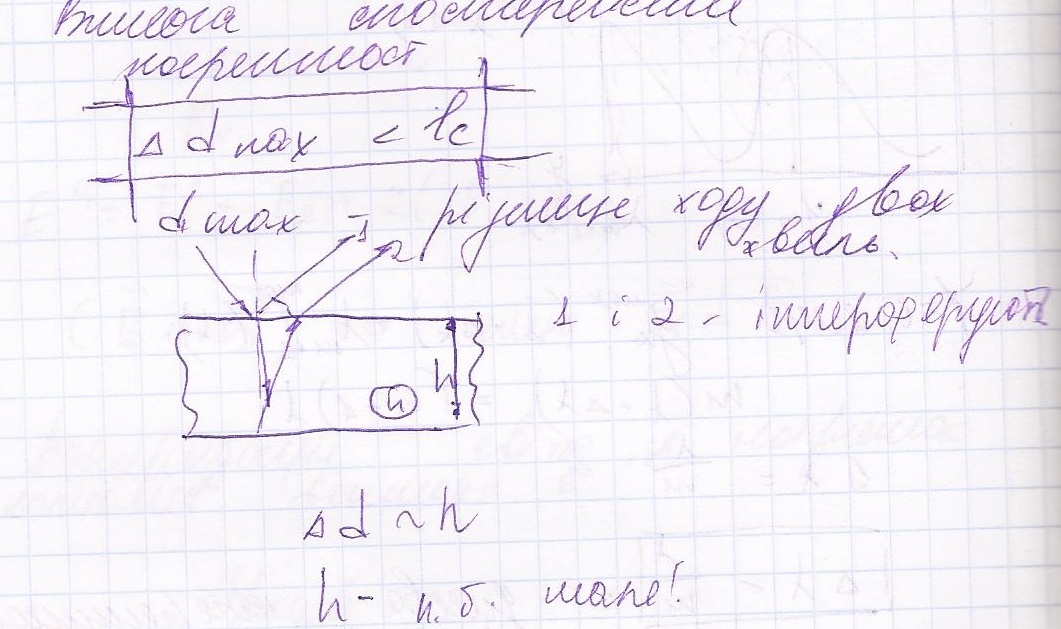 Вимога спостереження
когерентност
Δ d max < lc
d max – різниця ходу двох
хвиль.
1
2
1 і 2 – інтерферують
n
h
Δd ~ h
h – п.б. мале!